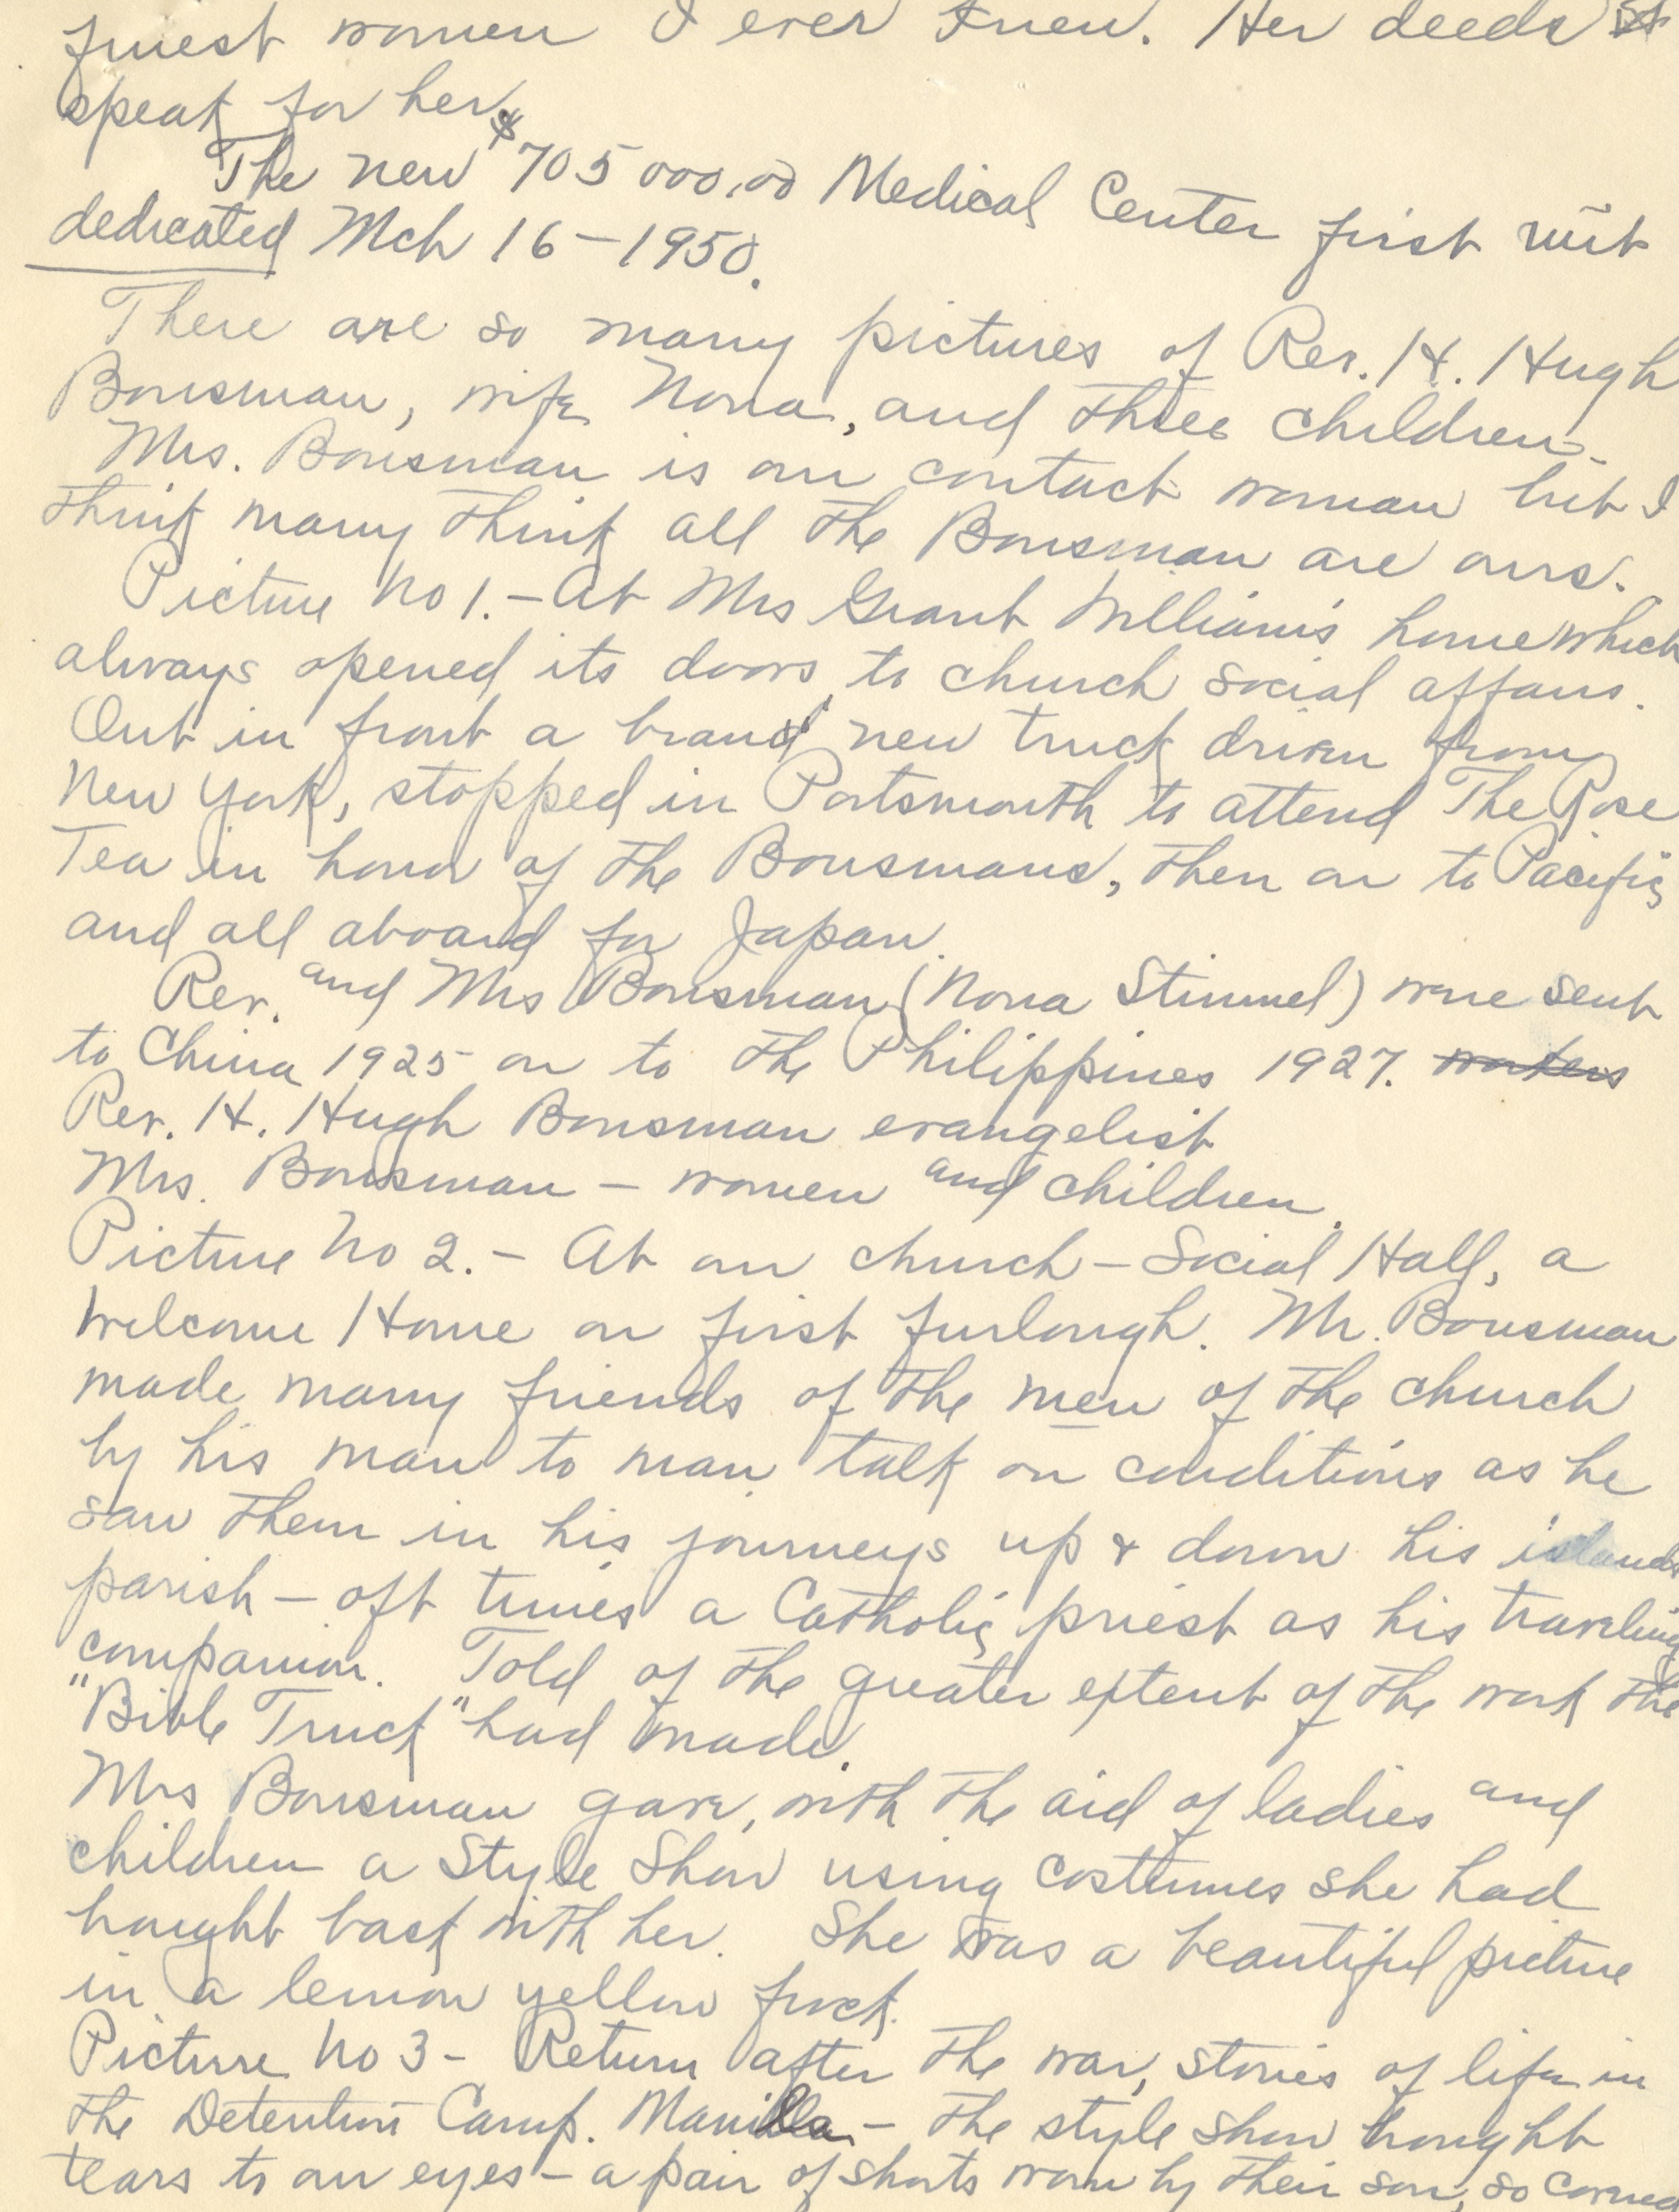 finest women I ever knew. Her deeds
speak for her.
The new $705000.00 Medical Center first unit
dedicated Mch 16-1950.
There are so many pictures of Rev. H. Hugh
Bousman, wife Nona, and three children.
Mrs. Bousman is our contact woman but I
think many think all the Bousman are ours.
Picture No 1. - At Mrs Grant William's home which
always opened its doors to church social affairs.
Out in front a brand new truck driven from
New York, stopped in Portsmouth to attend The Rose
Tea in honor of the Bousmans, then on to Pacific
and all aboard for Japan.
Rev. and Mrs Bousman (Nona Stimmel) were sent
to China 1925 on to the Philippines 1927. workers
Rev. H. Hugh Bousman evangelist
Mrs. Bousman - women and children.
Picture No 2. - At our church - Social Hall, a
Welcome Home on first furlough. Mr. Bousman
made many friends of the men of the church
by his man to man talk on conditions as he
saw them in his journeys up & down his islands
parish - oft times a Catholic priest as his traveling
companion. Told of the greater extent of the work the
"Bible Truck" had made.
Mrs Bousman gave, with the aid of ladies and
children a Style Show using costumes she had
bought back with her. She was a beautiful picture
in a lemon yellow frock.
Picture No 3 - Return after the war, stories of life in
the Detention Camp. Manilla - the style show brought
tears to our eyes - a pair of shorts worn by their son, so